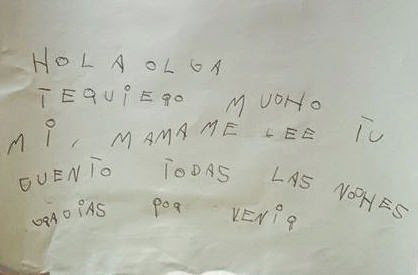 HOLA OLGA
TEQUiERO MUCHO
Mi, MAMA ME LEE TU
CUENTO TODAS LAS NOCHES
GRACiAS POR VENiR